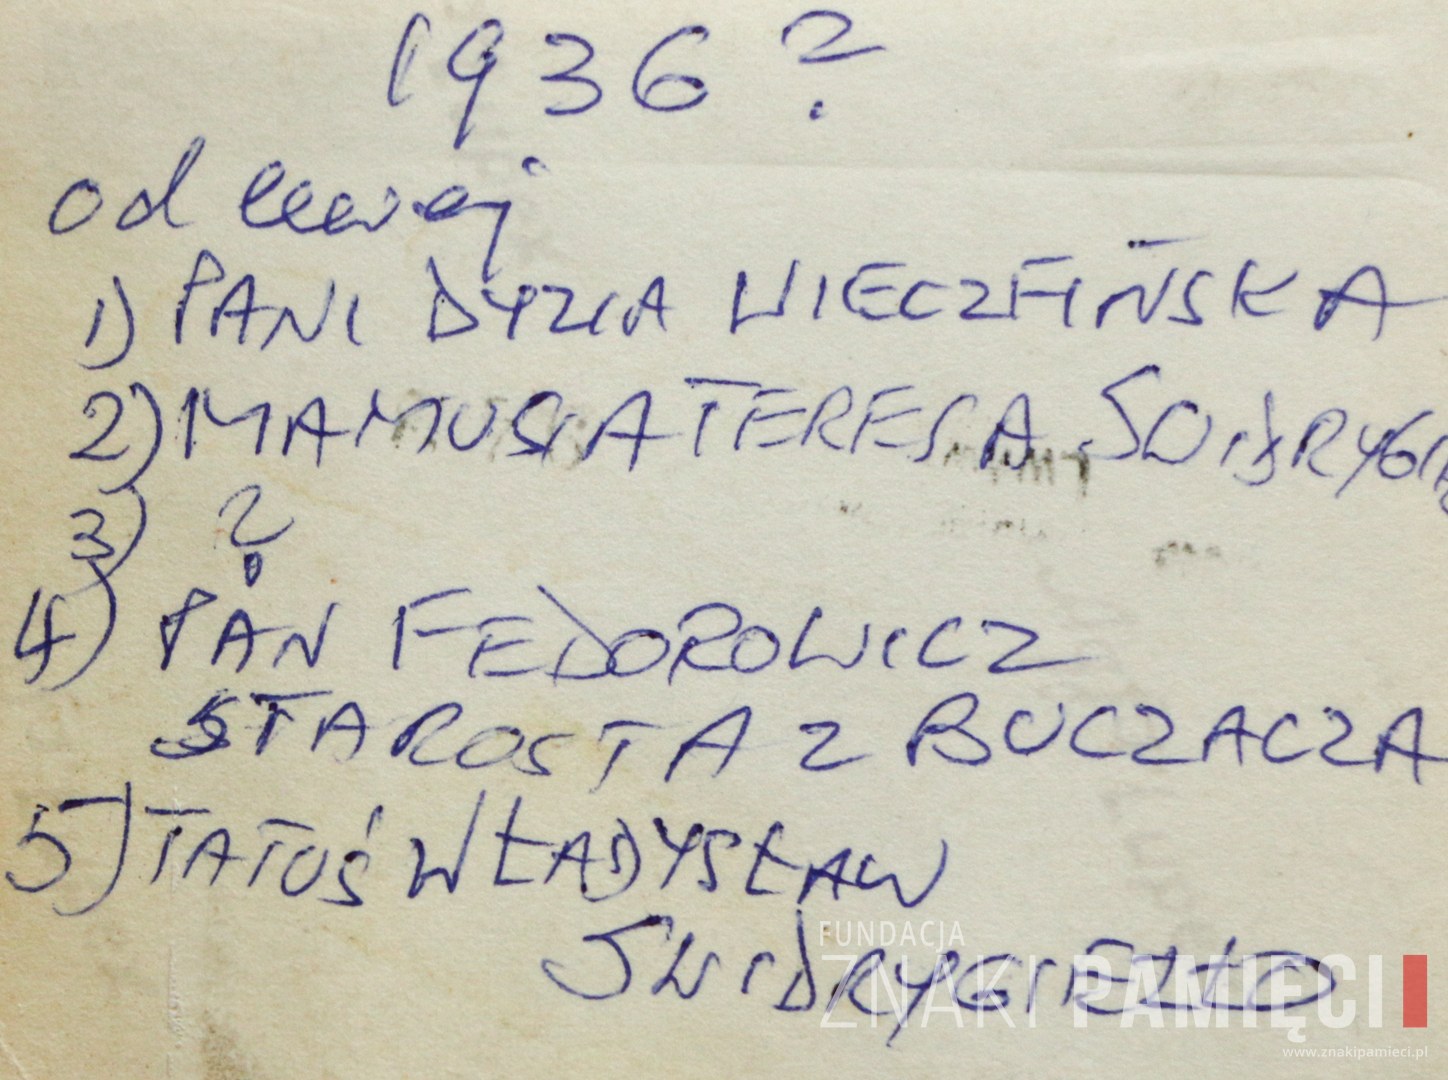 1936 ?
od lewej
1) PANI DYZIA WIECZFIŃSKA
2) MAMUSIA TERESA SWIDRYGIE
3) ?
4) PAN FEDOROWICZ
STAROSTA Z BUCZACZA
5) TATUŚ WŁADYSŁAW
SWIDRYGIEŁŁO
FUNDACJA
ZNAKI PAMIĘCI
www.znakipamieci.pl